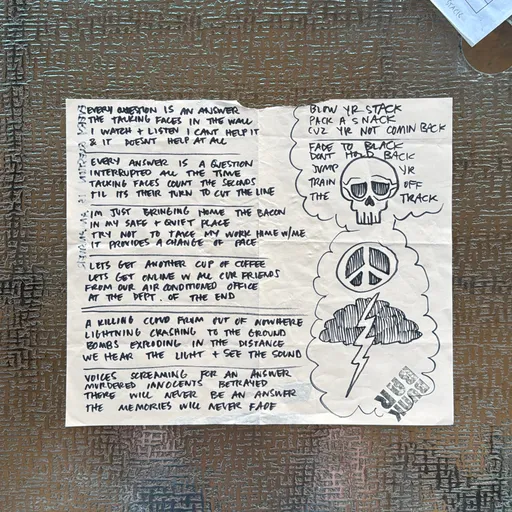 EVERY QUESTION IS AN ANSWER
THE TALKING FACES IN THE WALL
I WATCH + LISTEN I CANT HELP IT
& IT DOESNT HELP AT ALL
EVERY ANSWER IS A QUESTION
INTERRUPTED ALL THE TIME
TALKING FACES COUNT THE SECONDS
TIL ITS THEIR TURN TO CUT THE LINE
IM JUST BRINGING HOME THE BACON
IN MY SAFE + QUIET PLACE
TRY NOT TO TAKE MY WORK HOME W/ME
IT PROVIDES A CHANGE OF FACE
LETS GET ANOTHER CUP OF COFFEE
LETS GET ONLINE W ALL OUR FRIENDS
FROM OUR AIR CONDITIONED OFFICE
AT THE DEPT. OF THE END
A KILLING CLOUD FROM OUT OF NOWHERE
LIGHTNING CRASHING TO THE GROUND
BOMBS EXPLODING IN THE DISTANCE
WE HEAR THE LIGHT + SEE THE SOUND
VOICES SCREAMING FOR AN ANSWER
MURDERED INNOCENTS BETRAYED
THERE WILL NEVER BE AN ANSWER
THE MEMORIES WILL NEVER FADE
BLOW YR STACK
PACK A SNACK
CUZ YR NOT COMIN BACK
FADE TO BLACK
DONT HOLD BACK
JUMP YR
TRAIN OFF
THE TRACK
PUNK
BAR